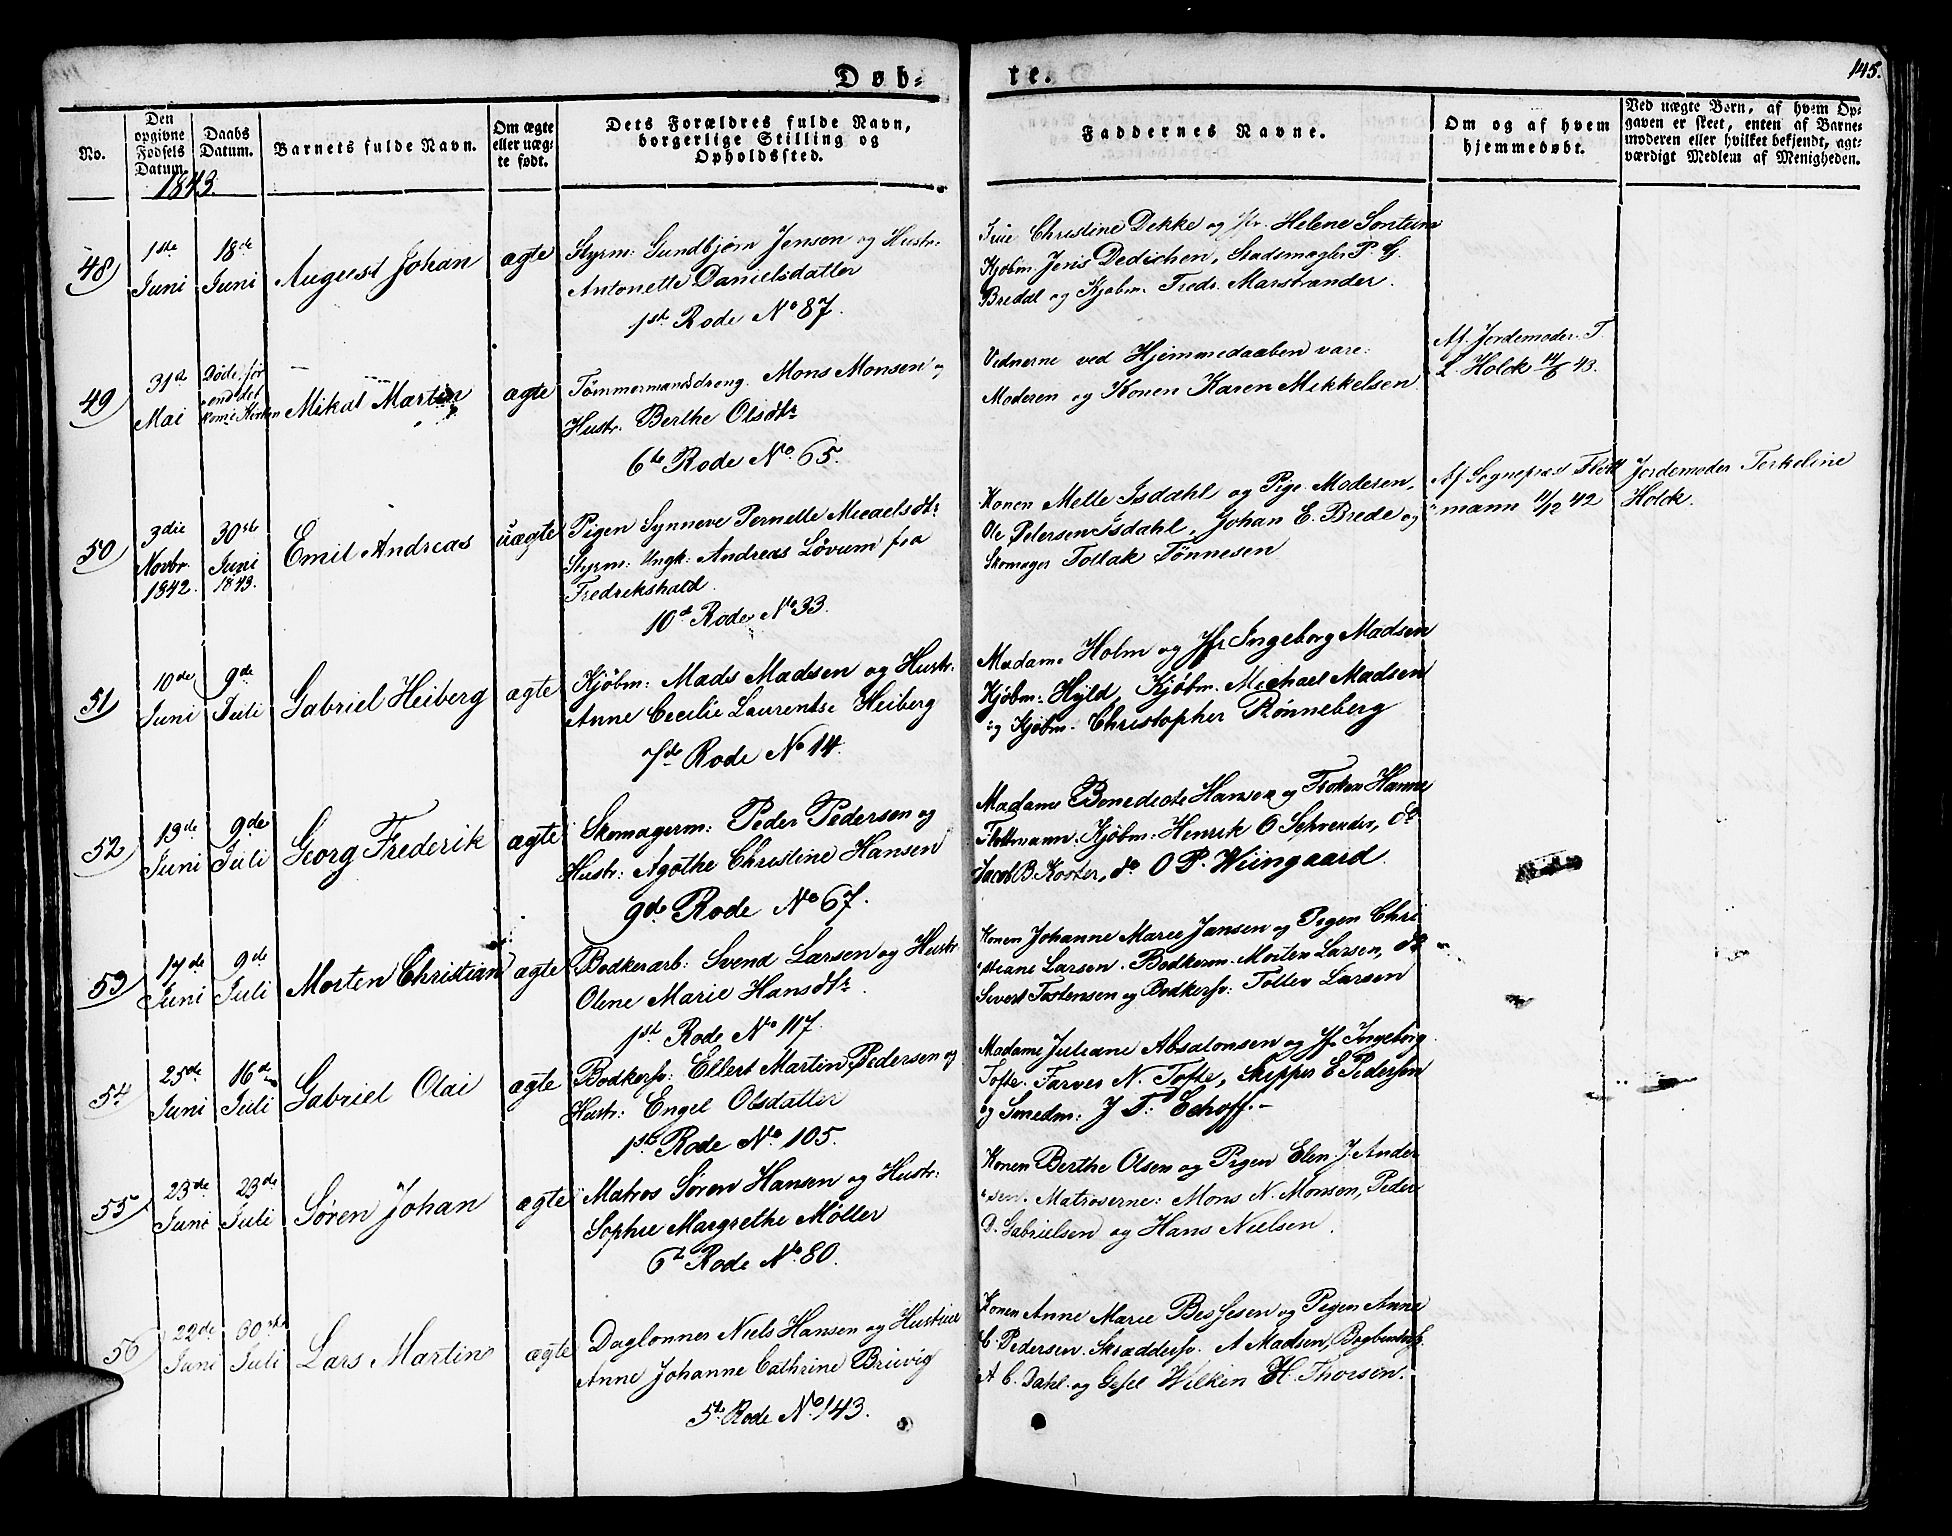 Døb-
te.
145.
No.
Den
opgivne
Fødsels
Datum.
Daabs
Datum.
Barnets fulde Navn.
Om ægte
eller uæg-
te født.
Dets Forældres fulde Navn,
borgerlige Stilling og
Opholdssted.
Faddernes Navne.
Om og af hvem
hjemmedøbt.
Ved uægte Børn, af hvem Op-
gaven er skeet, enten af Barne-
moderen eller hvilket bekjendt, agt-
værdigt Medlem af Menigheden.
1843.
48
1ste
Juni
18de
Juni
August Johan
ægte
Styrm: Gundbjørn Jensen og Hustr:
Antonette Danielsdatter
1ste Rode No 87.
Christine Dekke og Helene Sontum
Kjøbm. Jens Dedichen, Stadsmægler P. G.
Bredal og Kjøbm. Fredr. Marstrander.
49
31te
Mai
Døde før
end det
kom i Kirken
Mikal Martin
ægte
Tømmermandsdreng. Mons Monsen og
Hustr. Berthe Olsdtr
6te Rode No. 65.
Vidnerne ved Hjemmedaaben vare:
Moderen og Konen Karen Mikkelsen
Af Jordemoder T.
L. Holck 43.
50
3die
Novbr.
1842.
30te
Juni
1843.
Emil Andreas
uægte
Pigen Synneve Pernelle Micaelsdtr
Styrm: Ungk: Andreas Løvum fra
Fredrikshald.
10de Rode No 33.
Konen Mette Isdahl og Pige Moderen,
Ole Petersen Isdahl, Johan E. Brede og
Skomager Tollak Tønnesen
Af Sognepræst Flott
mann 42
Jordemoder Terkeline
Holck.
51
10de
Juni
9de
Juli
Gabriel Heiberg
ægte
Kjøbm: Mads Madsen og Hustr.
Anne Cecilie Laurentse Heiberg
7de Rode No 14.
Madam Holm og Jfr Ingeborg Madsen
Kjøbm: Hyld, Kjøbm. Michael Madsen
og Kjøbm. Christopher Rønneberg
52
13de
Juni
9de
Juli
Georg Frederik
ægte
Skomagerm: Peder Pedersen og
Hustr: Agothe Christine Hansen
9de Rode No 67.
Madame Benedicte Hansen og Frøken Hanne
Flottmann. Kjøbm: Henrik O Schrøder, do
Jacob B. Koster, do O P. Wiingaard.
53
17de
Juni
9de
Juli
Morten Christian
ægte
Bødkerarb: Svend Larsen og Hustr
Olene Marie Hansdtr.
1ste Rode No 117.
Konen Johanne Marie Jansen og Pigen Chri
stiane Larsen. Bødkerm. Morten Larsen, do
Sivert Tostensen og Bødkersv: Tollev Larsen
54
25de
Juni
16de
Juli
Gabriel Olai
ægte
Bødkersv: Ellert Martin Pedersen og
Hustr: Engel Olsdatter
1ste Rode No. 105.
Madame Juliane Absalonsen og Jfr Ingeborg
Tofte. Farver N. Tofte, Skipper E Pedersen
og Smedm: J T: Echoff.
55
23de
Juni
23de
Juli
Søren Johan
ægte
Matros Søren Hansen og Hustr:
Sophie Margrethe Möller
6te Rode No. 80.
Konen Berthe Olsen og Pigen Elen J. Ander
sen. Matroserne: Mons N. Monsen, Peder
D. Gabrielsen og Hans Nielsen.
56
22de
Juni
30te
Juli
Lars Martin
ægte
Daglønner Niels Hansen og Hustrue
Anne Johanne Cathrine Brivig
5te Rode No 143.
Konen Anne Marie Bessesen og Pigen Anne
C. Pedersen. Skræddersv. A Madsen, Bogbindersv.
A C. Dahl og Gesel Wilken H. Thorsen.